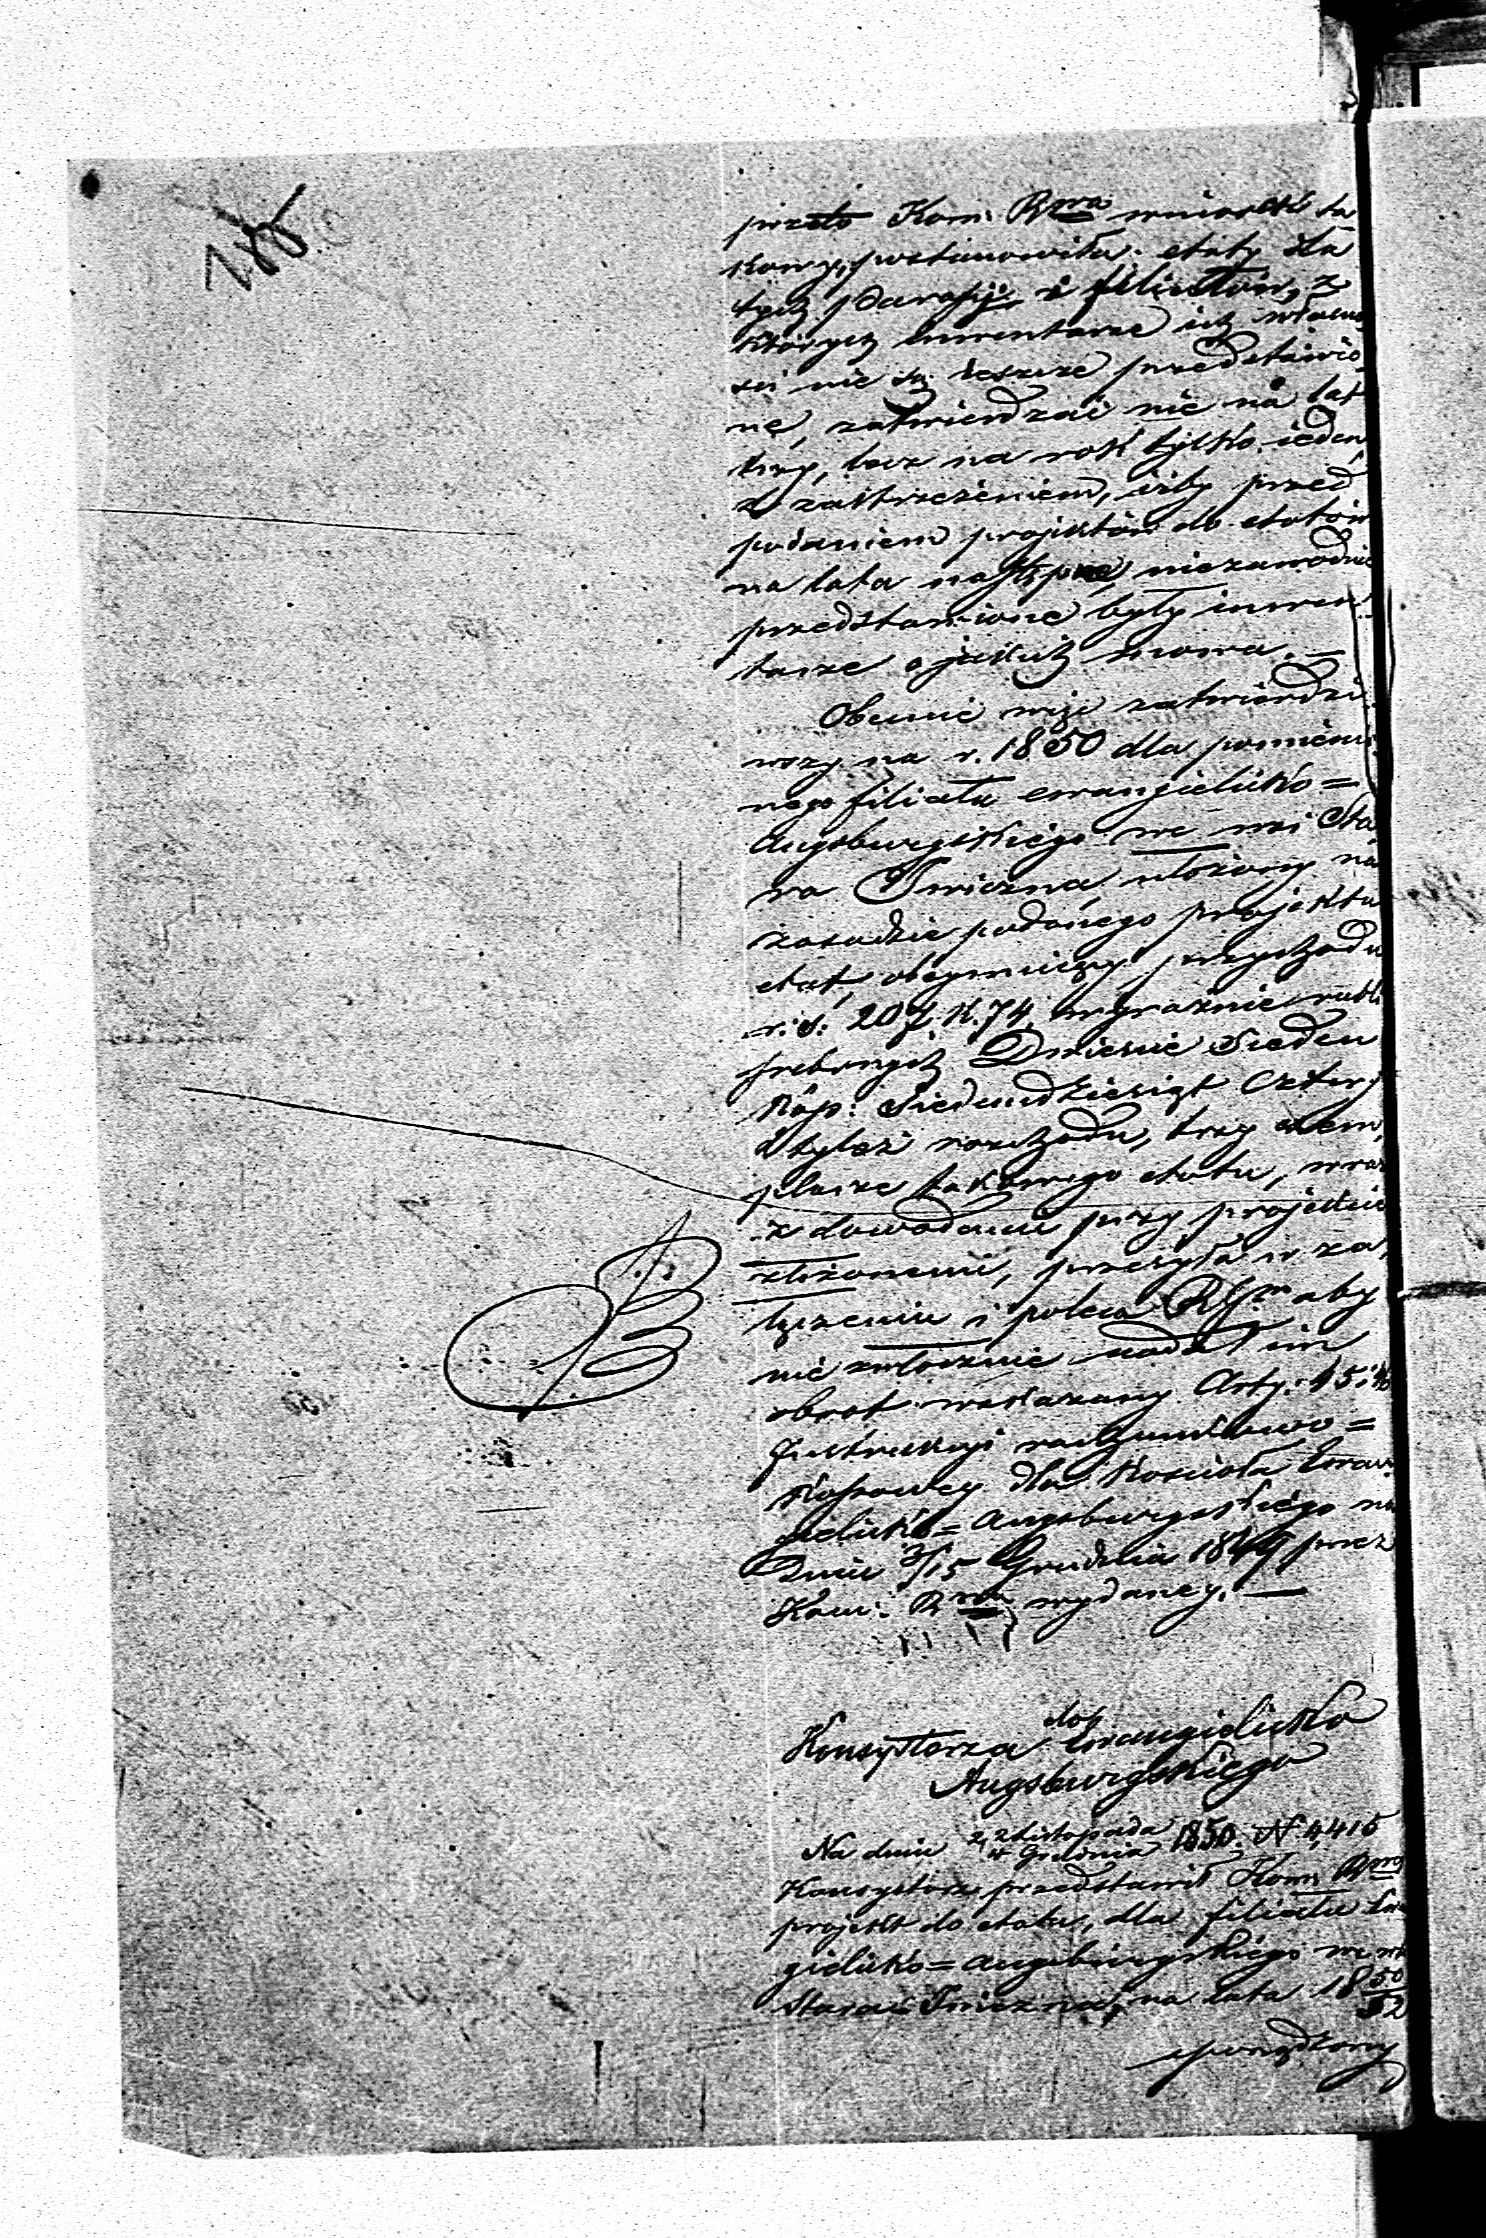 188
przeto Kom: Rwa wniosek ta
kowy, postanowiła: etaty dla
tych Parafij i filiałów, z
których inwentarze ich własno
ści nie są ieszcze przedstawio
ne, zatwierdzać nie na lat
trzy, lecz na rok tylko ieden,
z zastrzeżeniem, iżby przed
podaniem projektów do etatów
na lata następne, niezawodnie
przedstawione były inwen
tarze o jakich mowa. —
Obecnie więc zatwierdzi
wszy na r. 1850 dla pomienio
nego filiału ewangielicko=
Augsburgskiego we wsi Sta
ra Iwiczna, ułożony na
zasadzie podanego projektu
etat, obejmujący przychodu
r: s: 207 k. 74 wyraźnie rubli
srebrnych Dwieście Siedem
Kop: Siedmdziesiąt Cztery
i tyleż rozchodu, trzy exem
plarze takowego etatu, wraz
z dowodami przy projekcie
złożonemi, przesyła w za
łączeniu i poleca aby
nie zwłocznie nadał im
obrot wskazany Arty: 45 i 46
Instrukcyi rachunkowo=
Kassowey dla Kościoła Ewan
gielicko=Augsburgskiego na
Dniu 3/15 Grudnia 1849 przez
Kom: Rwa wydaney. —
do
Konsystorza Ewangielicko
Augsburgskiego
Na dniu 22 Listopada / 4 Grudnia 1850 N 4415
Konsystorz przedstawił Kom: Rwa
projekt do etatu, dla filiału Ewan
gielicko=Augsburgskiego we wsi
Stara Iwiczna, na lata 1850/52
sporządzony